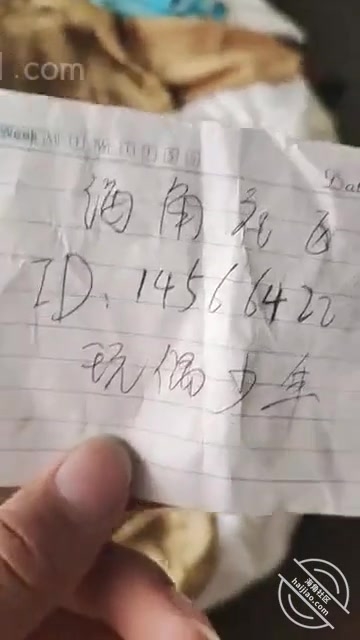 .com
Week
Dat
海角社区
ID：14566422
玩偶少年
海角社区
haijiao.com